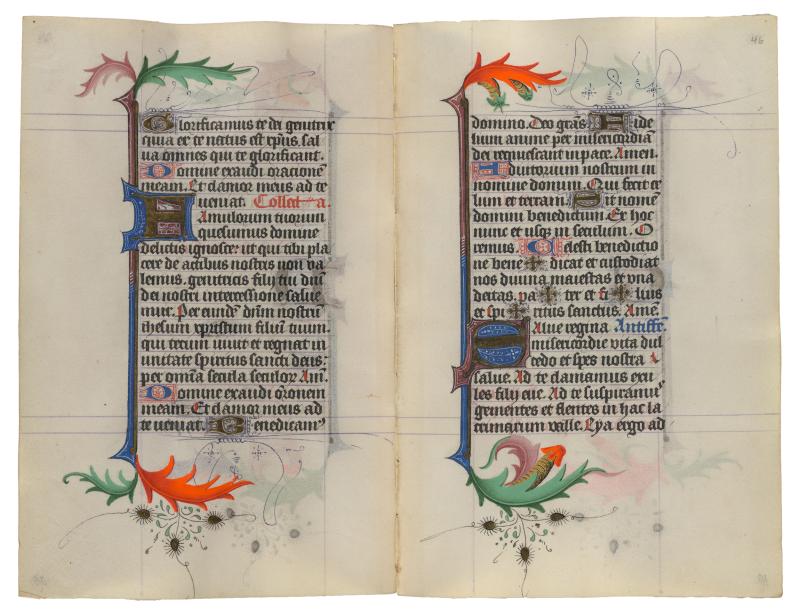 Glorificamus te dei genitrix
quia ex te natus est xp̄us. sal
ua omnes qui te glorificant.
Domine exaudi oratione᷑
meam. Et clamor meus ad te
ueniat. Collecta.
Famulorum tuorum
quesumus domine
delictis ignosce: ut qui tibi pla
cere de actibus nostris non va
lemus. genitricis filij tui dn̄i
dei nostri intercessione salue
mur. Per eund᷑ dn̄m nostru᷑
ihesum xpristum filiu᷑ tuum.
qui tecum uiuit et regnat in
unitate spiritus sancti deus:
per omnia secula seculor̄. Am̄.
Domine exaudi or̄onem
meam. Et clamor meus ad
te ueniat. Benedicam᷒
46
domino. Deo gr̄as. Fide
lium anime per misericordia᷑
dei requiescant in pace. Amen.
Adiutorium nostrum in
nomine domini. Qui fecit ce
lum et terram. Sit nome᷑
domini benedictum. Ex hoc
nunc et usq᷑ in seculum. O
remus. Celesti benedictio
ne bene ✠ dicat et custodiat
nos diuina maiestas et vna
deitas. pa ✠ ter et fi ✠ lius
et spi ✠ ritus sanctus. Ame᷑.
Salue regina. Antiffe᷑
misericordie vita dul
cedo et spes nostra
salue. Ad te clamamus exu
les filij eue. Ad te suspiram᷒
gementes et flentes in hac la
crimarum valle. Eya ergo ad